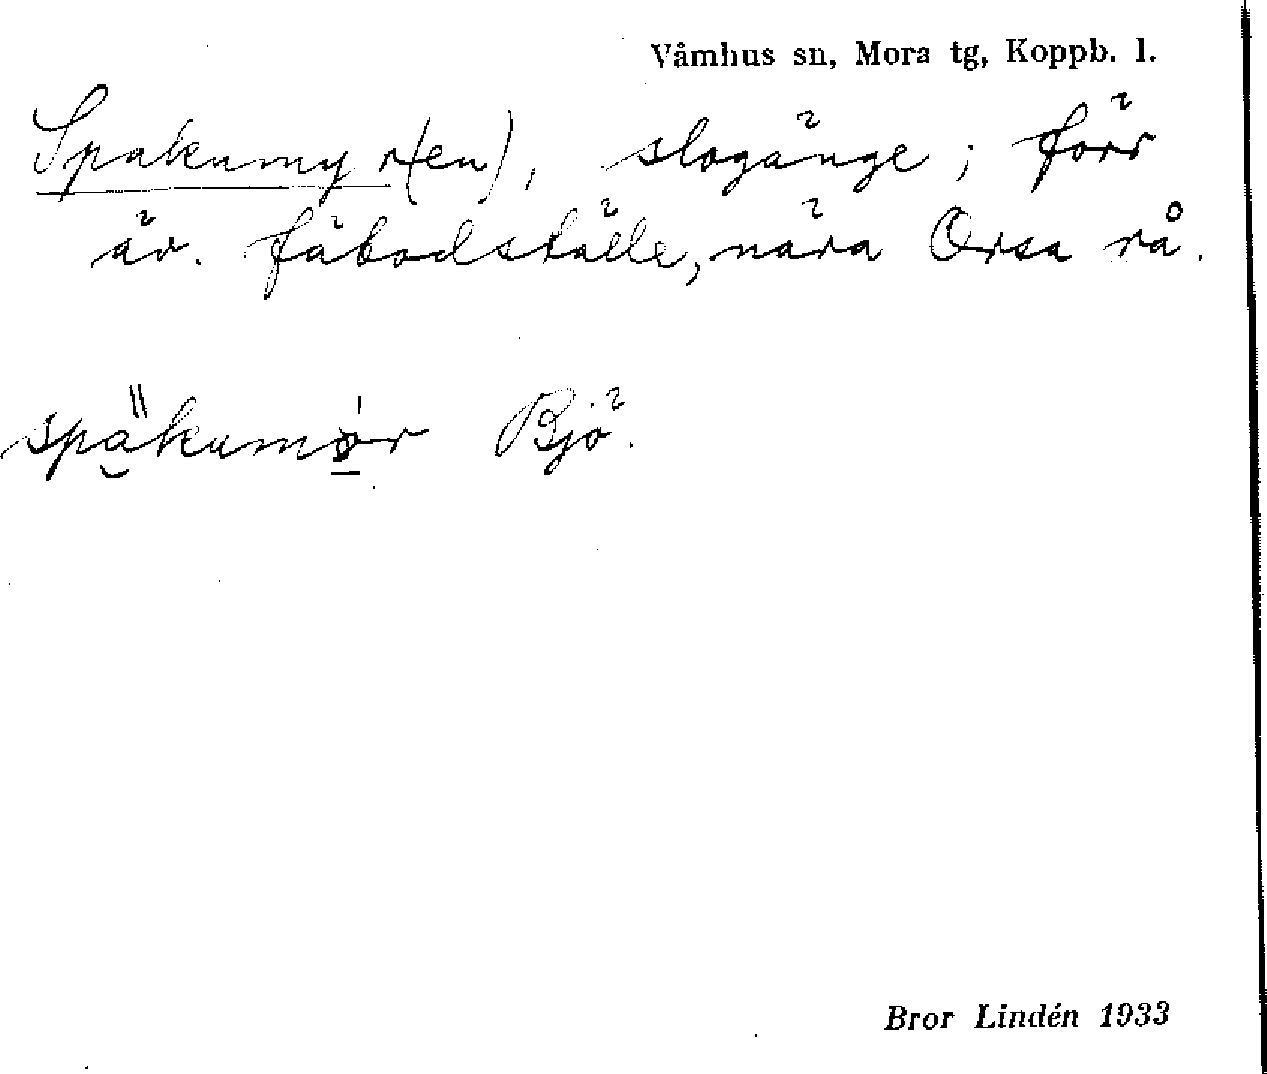 Våmhus sn, Mora tg, Koppb. l.
Spakumyr(en), slogänge; förr
äv. fäbodställe, nära Orsa rå.
späkumør Bjö.
Bror Lindén 1933